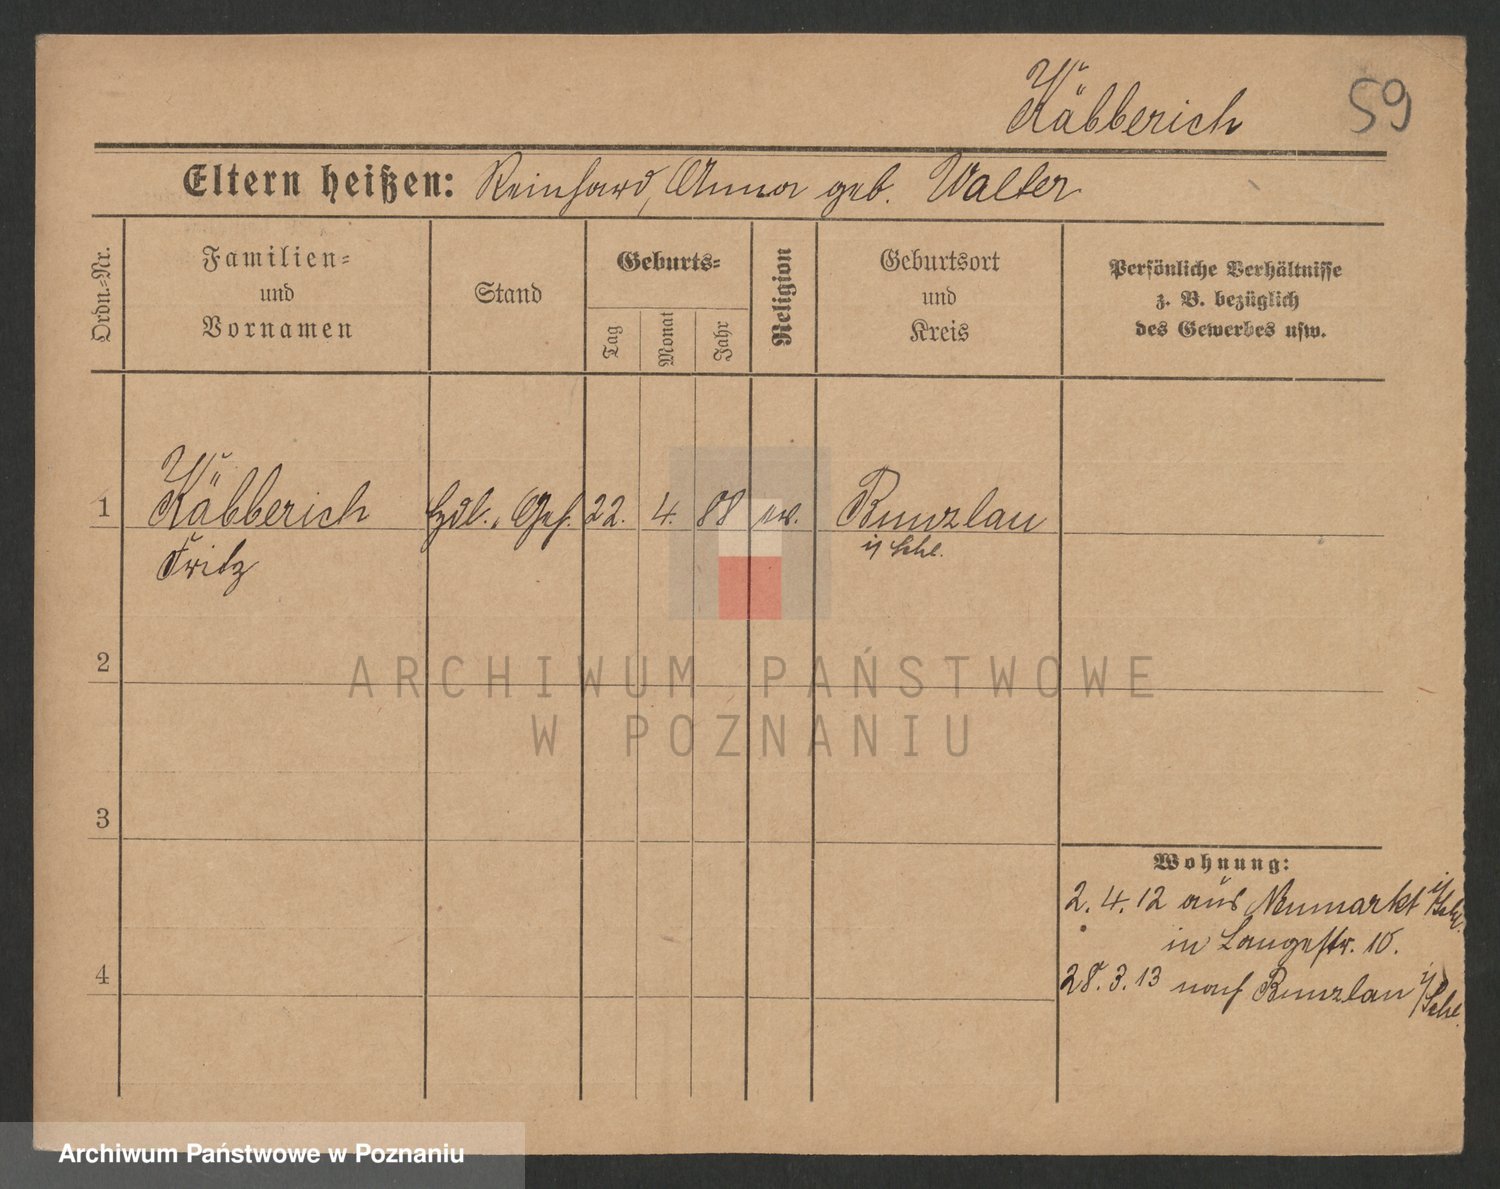 Käbberich
59
Eltern heißen: Reinhard, Anna geb. Walter
Ordn.-Nr.
Familien-
und
Vornamen
Stand
Geburts-
Tag
Monat
Jahr
Religion
Geburtsort
und
Kreis
Persönliche Verhältnisse
z. B. bezüglich
des Gewerbes usw.
1 Käbberich Hdl. Geh. 22. 4. 88 ev. Bunzlau
Fritz i/Schl.
2
ARCHIWUM PAŃSTWOWE
W POZNANIU
3
Wohnung:
2. 4. 12 aus Neumarkt i/Schl.
in Langestr. 10.
4
28. 3. 13 nach Bunzlau i/Schl.
Archiwum Państwowe w Poznaniu